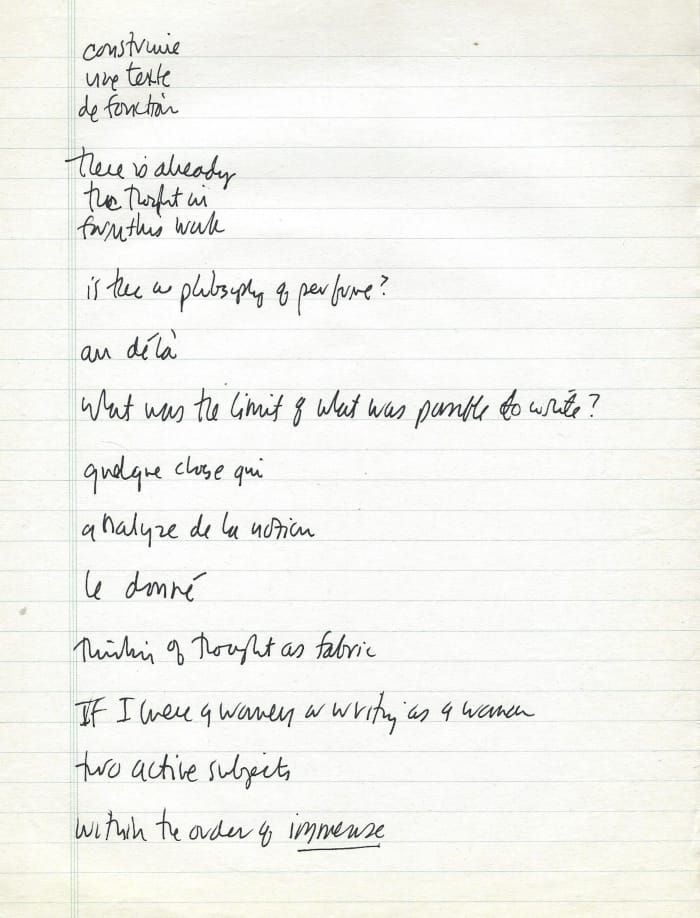 construire
une texte
de fonction
there is already
the thought in
form this work
is there a philosophy of perfume?
au délà
What was the limit of what was possible to write?
quelque chose qui
analyze de la notion
le donné
thinking of thought as fabric
If I were a woman or writing as a woman
two active subjects
within the order of immense